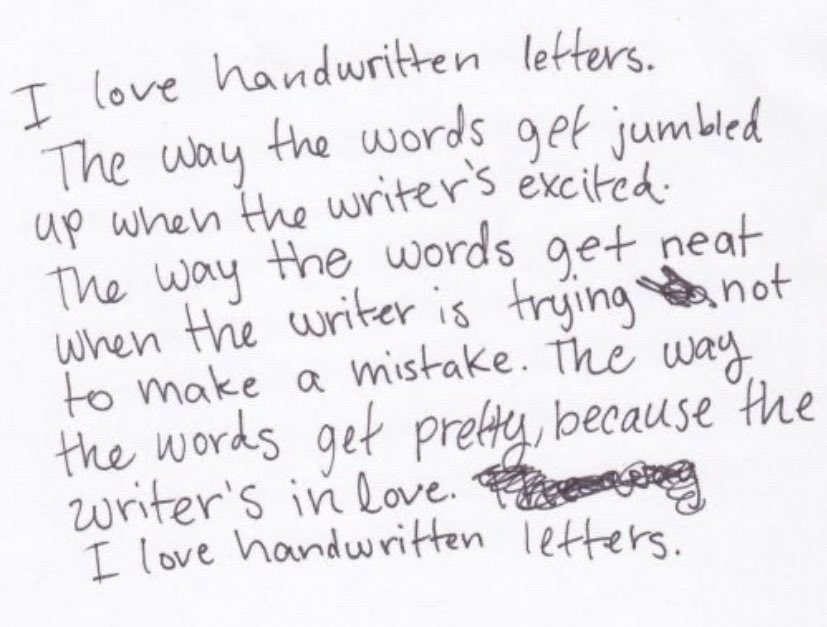 I love handwritten letters.
The way the words get jumbled
up when the writer's excited.
The way the words get neat
when the writer is trying not
to make a mistake. The way
the words get pretty, because the
writer's in love.
I love handwritten letters.